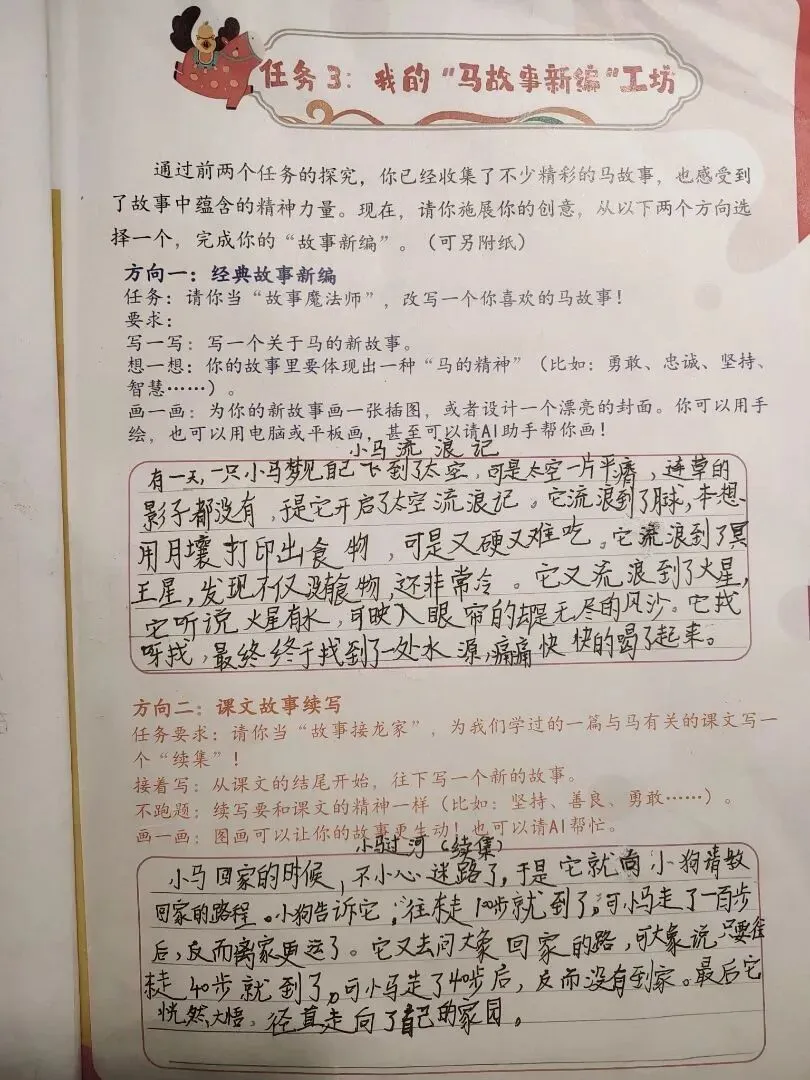 任务3：我的“马故事新编”工坊
通过前两个任务的探究，你已经收集了不少精彩的马故事，也感受到
了故事中蕴含的精神力量。现在，请你施展你的创意，从以下两个方向选
择一个，完成你的“故事新编”。（可另附纸）
方向一：经典故事新编
任务：请你当“故事魔法师”，改写一个你喜欢的马故事！
要求：
写一写：写一个关于马的新故事。
想一想：你的故事里要体现出一种“马的精神”（比如：勇敢、忠诚、坚持、
智慧……）。
画一画：为你的新故事画一张插图，或者设计一个漂亮的封面。你可以用手
绘，也可以用电脑或平板画，甚至可以请AI助手帮你画！
小马流浪记
有一天，一只小马梦见自己飞到了太空，可是太空一片平瘠，连草的
影子都没有，于是它开启了太空流浪记。它流浪到了月球，本想
用月壤打印出食物，可是又硬又难吃。它流浪到了冥
王星，发现不仅没有食物，还非常冷。它又流浪到了火星，
它听说火星有水，可映入眼帘的却是无尽的风沙。它找
呀找，最终终于找到了一处水源，痛痛快快的喝了起来。
方向二：课文故事续写
任务要求：请你当“故事接龙家”，为我们学过的一篇与马有关的课文写一
个“续集”！
接着写：从课文的结尾开始，往下写一个新的故事。
不跑题：续写要和课文的精神一样（比如：坚持、善良、勇敢……）。
画一画：图画可以让你的故事更生动！也可以请AI帮忙。
小马过河（续集）
小马回家的时候，不小心迷路了，于是它就向小狗请教
回家的路程。小狗告诉它：往东走100步就到了。可小马走了一百步
后，反而离家更远了。它又去问大象回家的路，可大象说只要往
东走40步就到了，可小马走了40步后，反而没有到家。最后它
恍然大悟，径直走向了自己的家园。